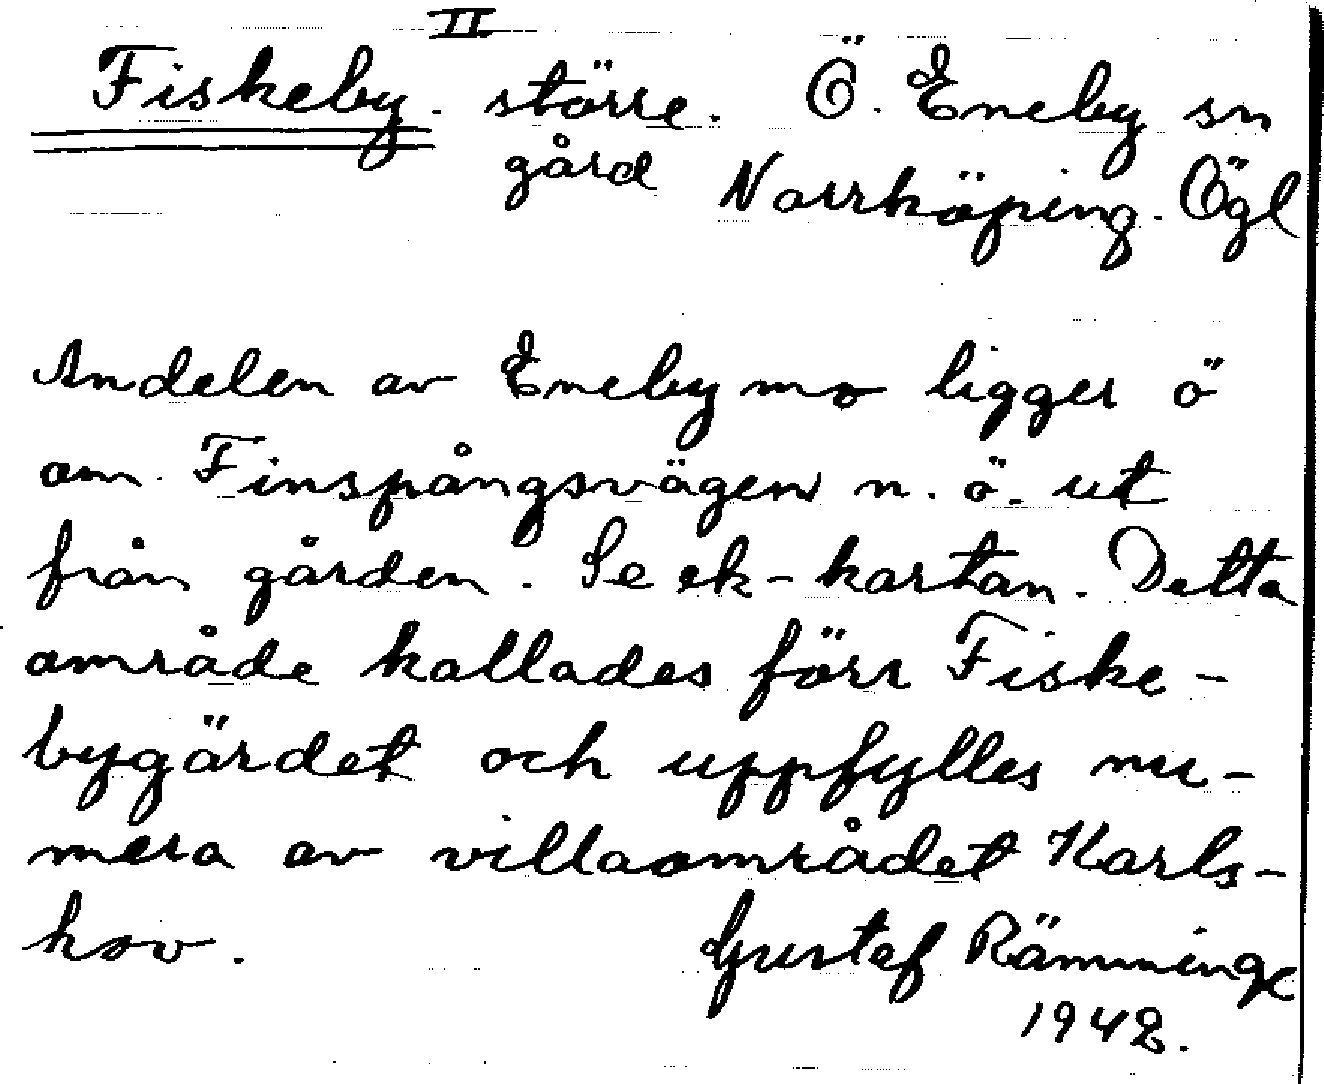 II
Fiskeby. större. Ö. Eneby sn
gård Norrköping. Ögl
Andelen av Eneby mo ligger ö
om Finspångsvägen n. ö. ut
från gården. Se ek-kartan. Detta
område kallades förr Fiske-
bygärdet och uppfylles nu-
mera av villaområdet Karls-
hov. Gustaf Rämminge
1942.